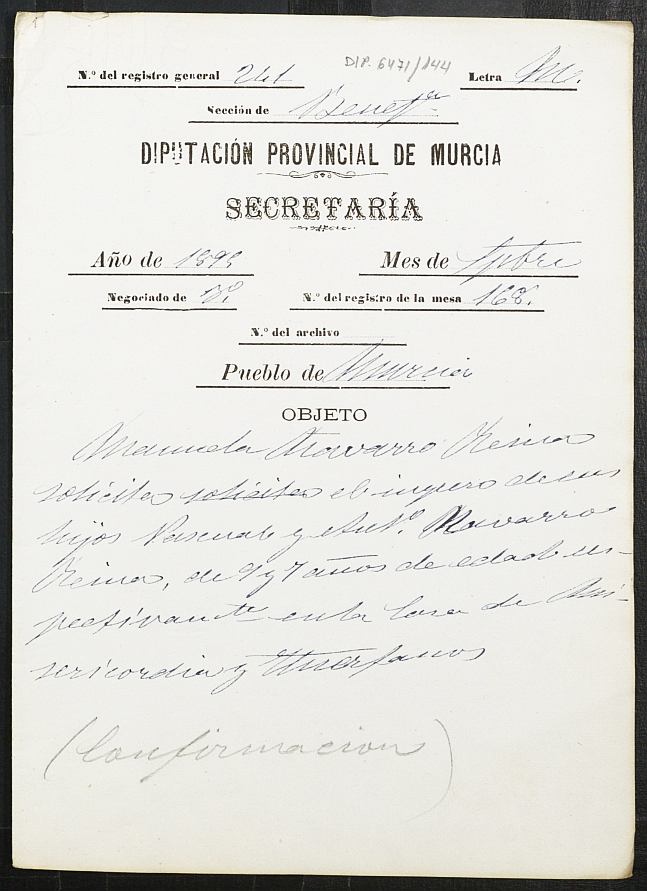 DIP. 6471/144
N.º del registro general 241 Letra M.
Sección de Benefª
DIPUTACIÓN PROVINCIAL DE MURCIA
SECRETARÍA
Año de 1899 Mes de Spbre
Negociado de 3º. N.º del registro de la mesa 168.
N.º del archivo
Pueblo de Murcia
OBJETO
Manuela Navarro Reina
solicita solicita el ingreso de sus
hijos Pascual y Antº. Navarro
Reina, de 9 y 7 años de edad res-
pectivamte en la Casa de Mi-
sericordia y Huerfanos
(Confirmacion)